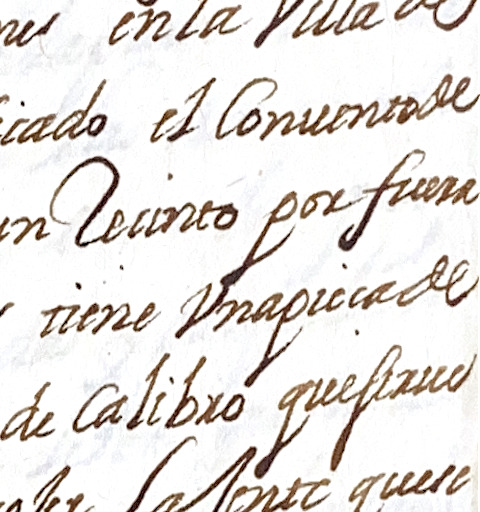 en la Villa de
icado el Conuento de
un Recinto por fuera
tiene Vna pieça de
de Calibro que sirue
la Gente que se